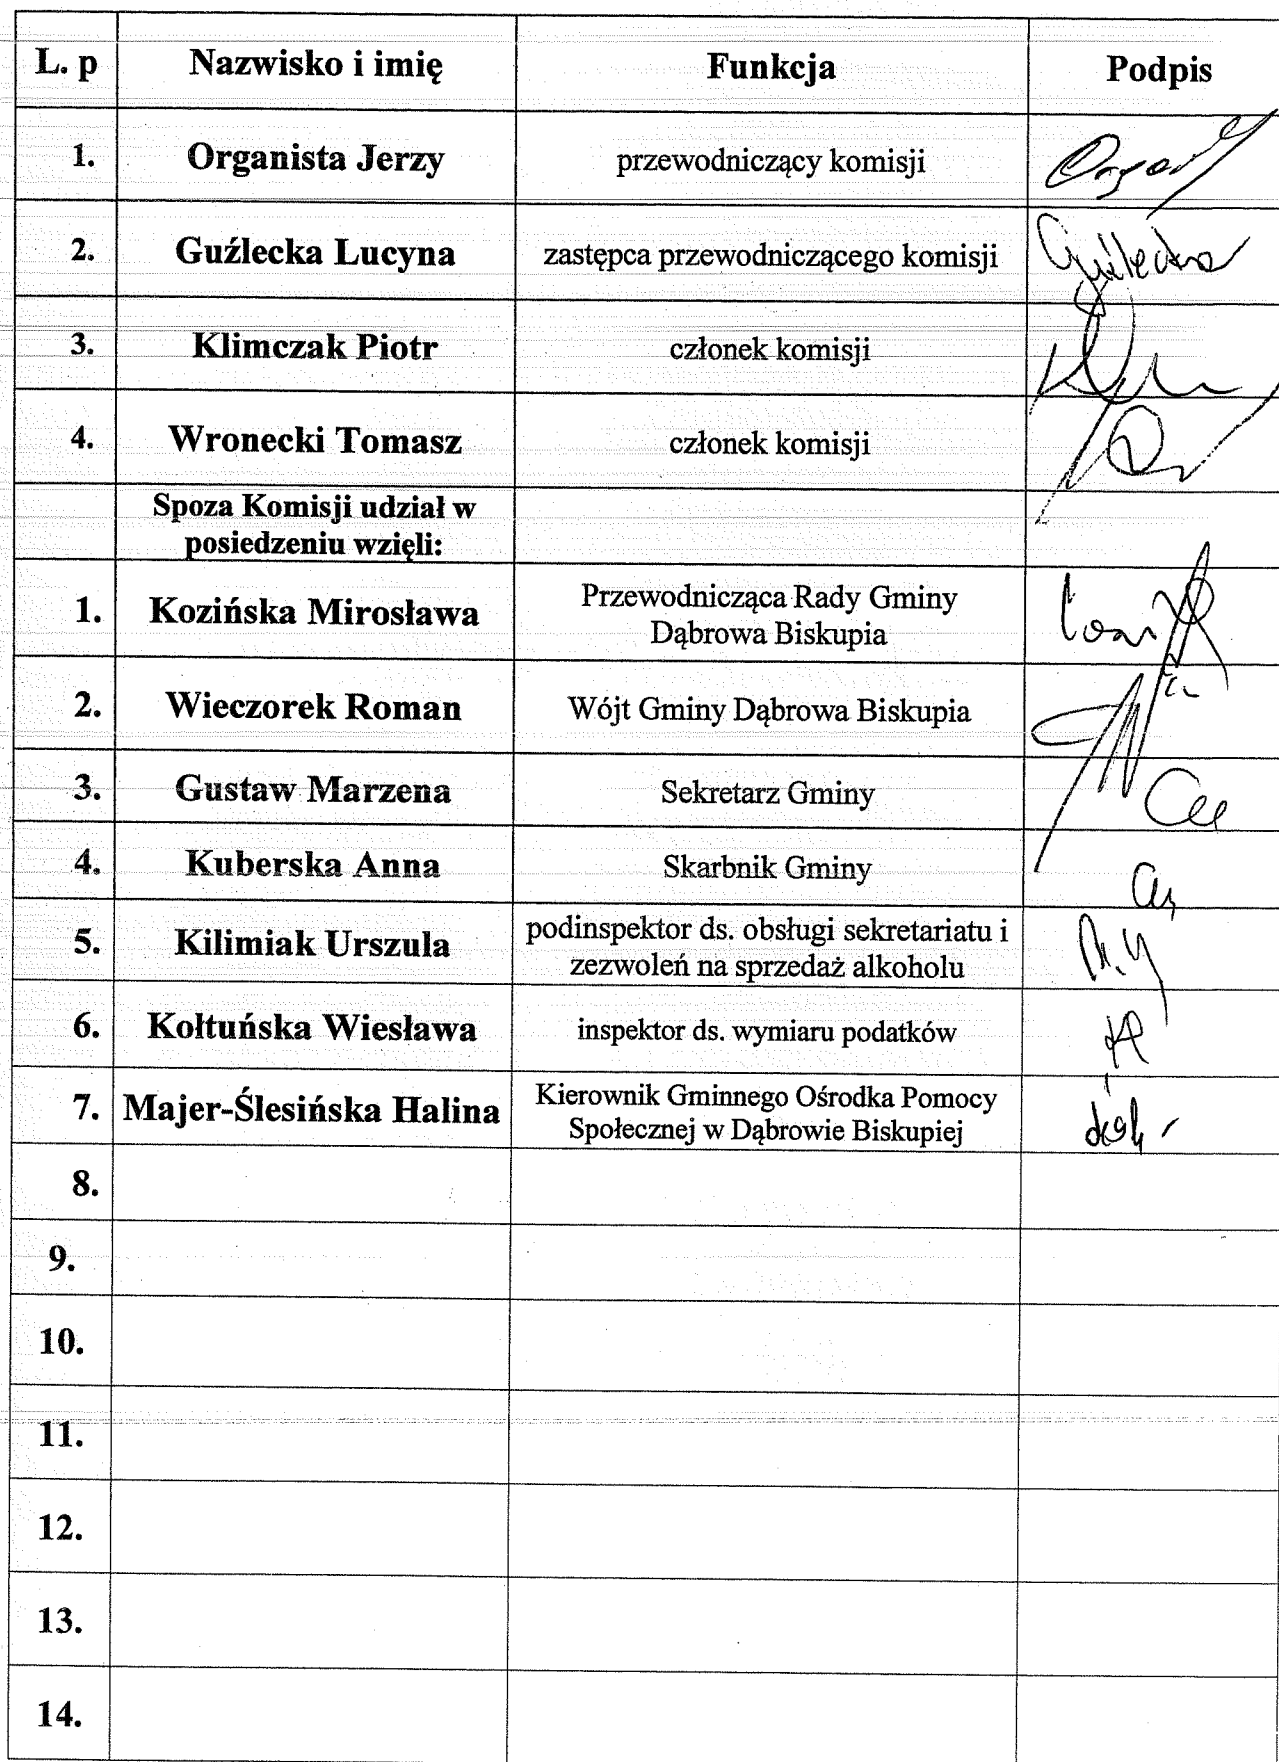 L. p Nazwisko i imię Funkcja Podpis
1. Organista Jerzy przewodniczący komisji
2. Guźlecka Lucyna zastępca przewodniczącego komisji Guźlecka
3. Klimczak Piotr członek komisji
4. Wronecki Tomasz członek komisji
Spoza Komisji udział w
posiedzeniu wzięli:
1. Kozińska Mirosława Przewodnicząca Rady Gminy
Dąbrowa Biskupia
2. Wieczorek Roman Wójt Gminy Dąbrowa Biskupia
3. Gustaw Marzena Sekretarz Gminy
4. Kuberska Anna Skarbnik Gminy
5. Kilimiak Urszula podinspektor ds. obsługi sekretariatu i
zezwoleń na sprzedaż alkoholu
6. Kołtuńska Wiesława inspektor ds. wymiaru podatków
7. Majer-Ślesińska Halina Kierownik Gminnego Ośrodka Pomocy
Społecznej w Dąbrowie Biskupiej
8.
9.
10.
11.
12.
13.
14.